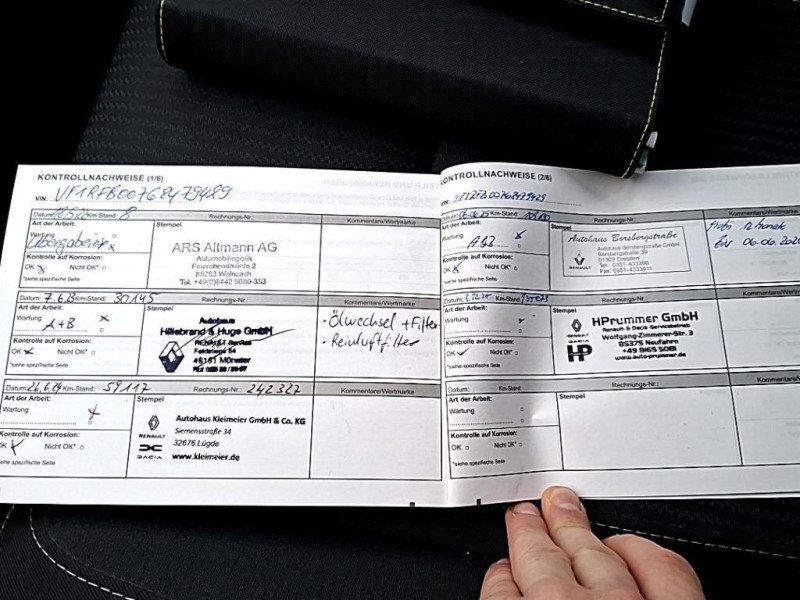 KONTROLLNACHWEISE (1/6)
VIN: VF1RFB00768479489
Datum: Km-Stand: 8
Rechnungs-Nr.:
Kommentare/Wertmarke
Art der Arbeit:
Wartung
Kontrolle auf Korrosion:
OK Nicht OK*
*siehe spezifische Seite
Stempel
ARS Altmann AG
Automobillogistik
Feuerobendmühle 2
85283 Wolnzach
Tel. +49(0)8442 9089-353
Datum: 7.6.23 Km-Stand: 30145
Rechnungs-Nr.:
Kommentare/Wertmarke
Art der Arbeit:
Wartung
A+B
Kontrolle auf Korrosion:
OK Nicht OK*
*siehe spezifische Seite
Stempel
Autohaus
Hillebrand & Huge GmbH
RENAULT Service
48161 Münster
- Ölwechsel + Filter
- Reinluftfilter
Datum: 26.6.24 Km-Stand: 59117
Rechnungs-Nr.: 242327
Kommentare/Wertmarke
Art der Arbeit:
Wartung
Kontrolle auf Korrosion:
OK Nicht OK*
*siehe spezifische Seite
Stempel
RENAULT
DACIA
Autohaus Kleimeier GmbH & Co. KG
Siemensstraße 34
32676 Lügde
www.kleimeier.de
KONTROLLNACHWEISE (2/6)
VIN:
Datum: 06.06.25 Km-Stand:
Rechnungs-Nr.:
Kommentare/Wertmarke
Art der Arbeit:
Wartung
Kontrolle auf Korrosion:
OK Nicht OK*
*siehe spezifische Seite
Stempel
RENAULT
Autohaus Borsbergstraße
Autohaus Borsbergstraße GmbH
Borsbergstraße 39
01309 Dresden
Tel.: 0351-433390
Fax: 0351-4333911
12 Monate
06.06.202
Datum: Km-Stand:
Rechnungs-Nr.:
Kommentare/Wertmarke
Art der Arbeit:
Wartung
Kontrolle auf Korrosion:
OK Nicht OK*
*siehe spezifische Seite
Stempel
RENAULT
DACIA
HP
HPrummer GmbH
Renault & Dacia -Servicebetrieb
Wolfgang-Zimmerer-Str. 3
85375 Neufahrn
+49 8165 5081
www.auto-prummer.de
Datum: Km-Stand:
Rechnungs-Nr.:
Kommentare/Wertmarke
Art der Arbeit:
Wartung
Kontrolle auf Korrosion:
OK Nicht OK*
*siehe spezifische Seite
Stempel